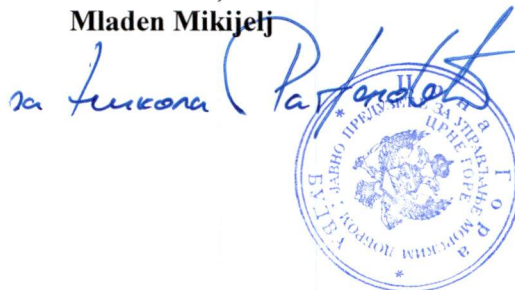 Mladen Mikijelj
за Никола
Црна Гора
ЈАВНО ПРЕДУЗЕЋЕ ЗА УПРАВЉАЊЕ МОРСКИМ ДОБРОМ
ЦРНЕ ГОРЕ
БУДВА